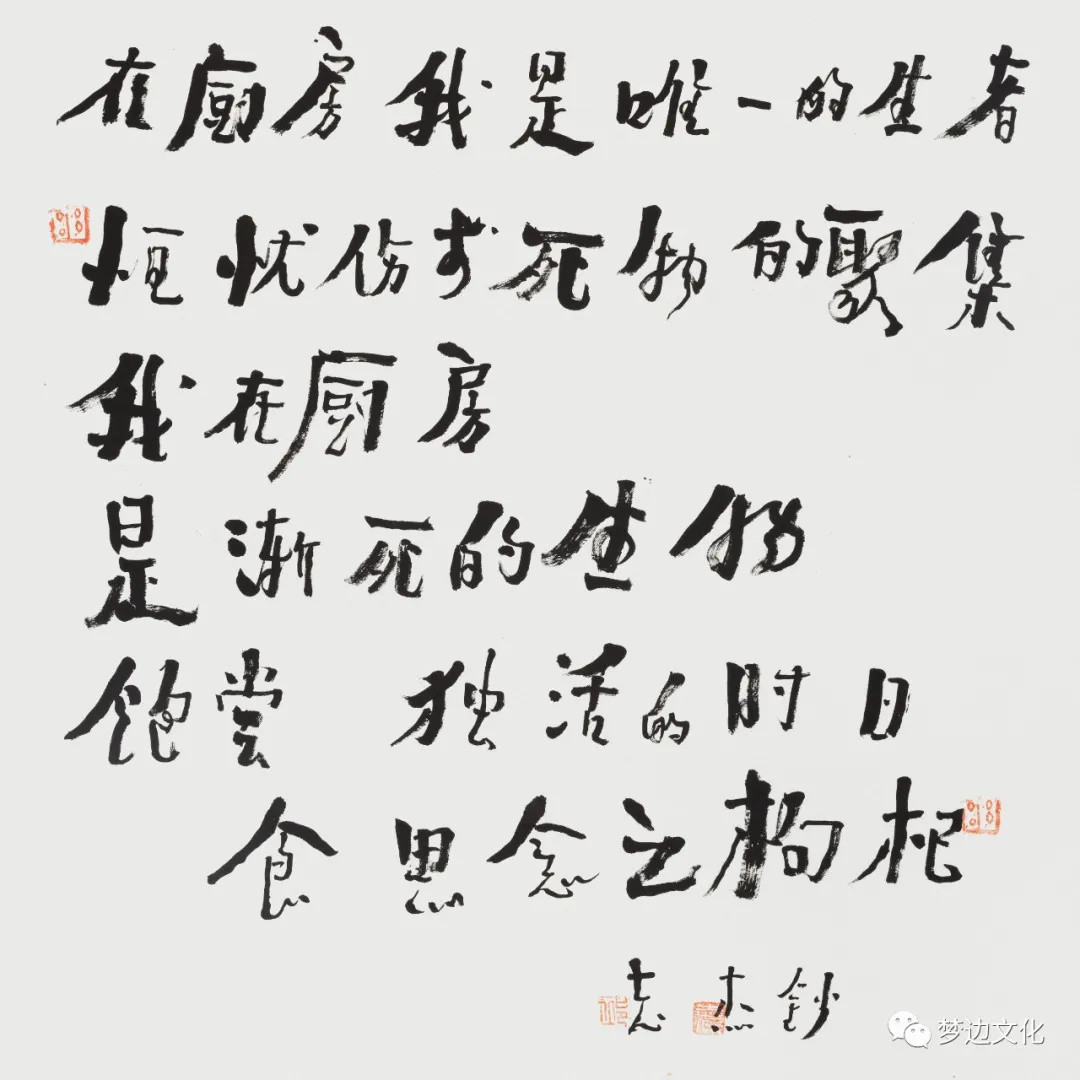 在厨房我是唯一的生者
恒忧伤于死物的聚集
我在厨房
是渐死的生物
饱尝 独活的时日
食思念之枸杞
志杰钞
梦边文化